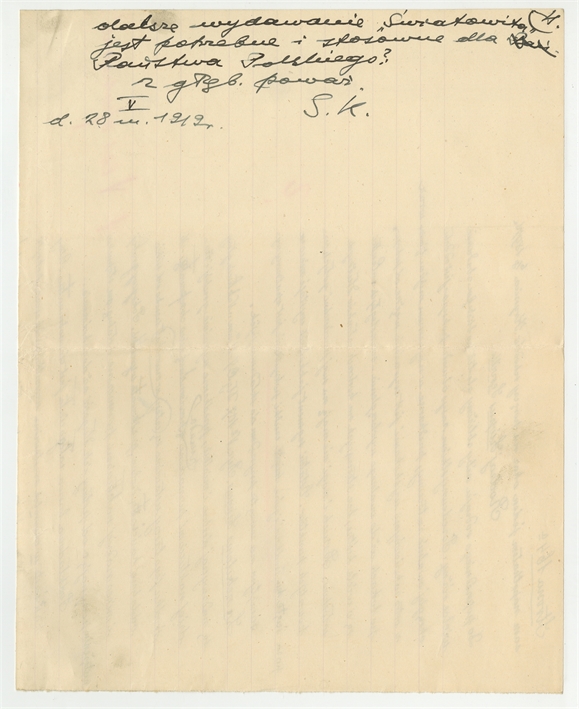 dalsze wydawanie „Światowita” (4.
jest potrzebne i stosowne dla
Państwa Polskiego?
z głęb. poważ.
S. K.
V
d. 28 m. 1919r.